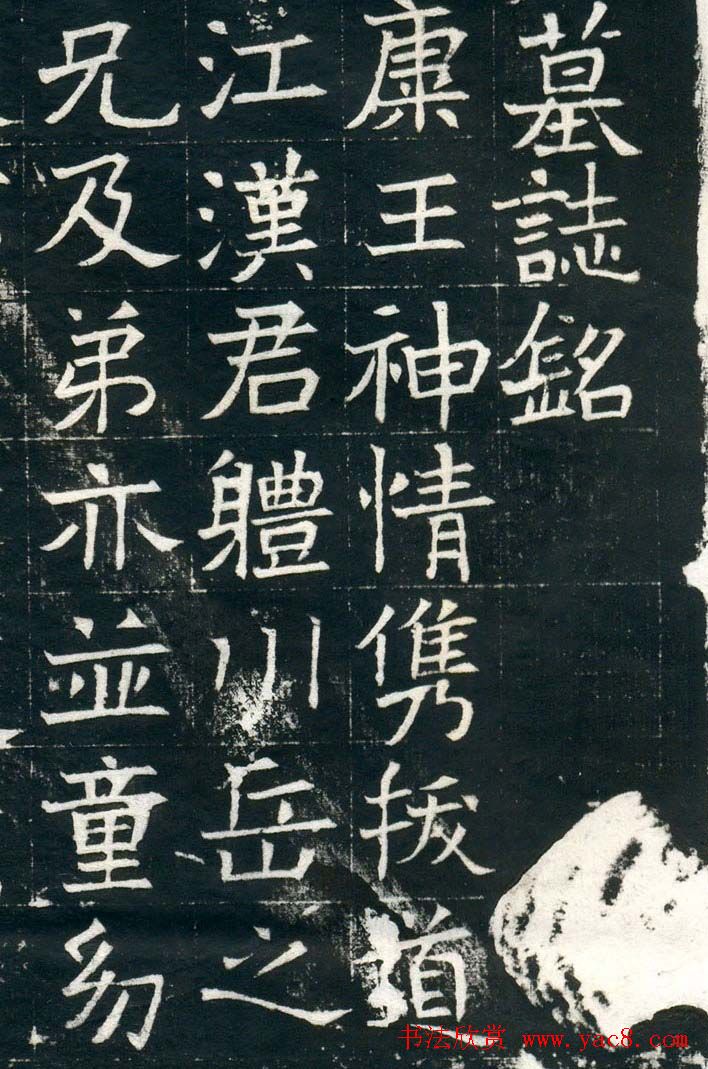 墓誌銘
康王神情儁拔道
江漢君體川岳之
兄及弟亦並童幼
书法欣赏 www.yac8.com